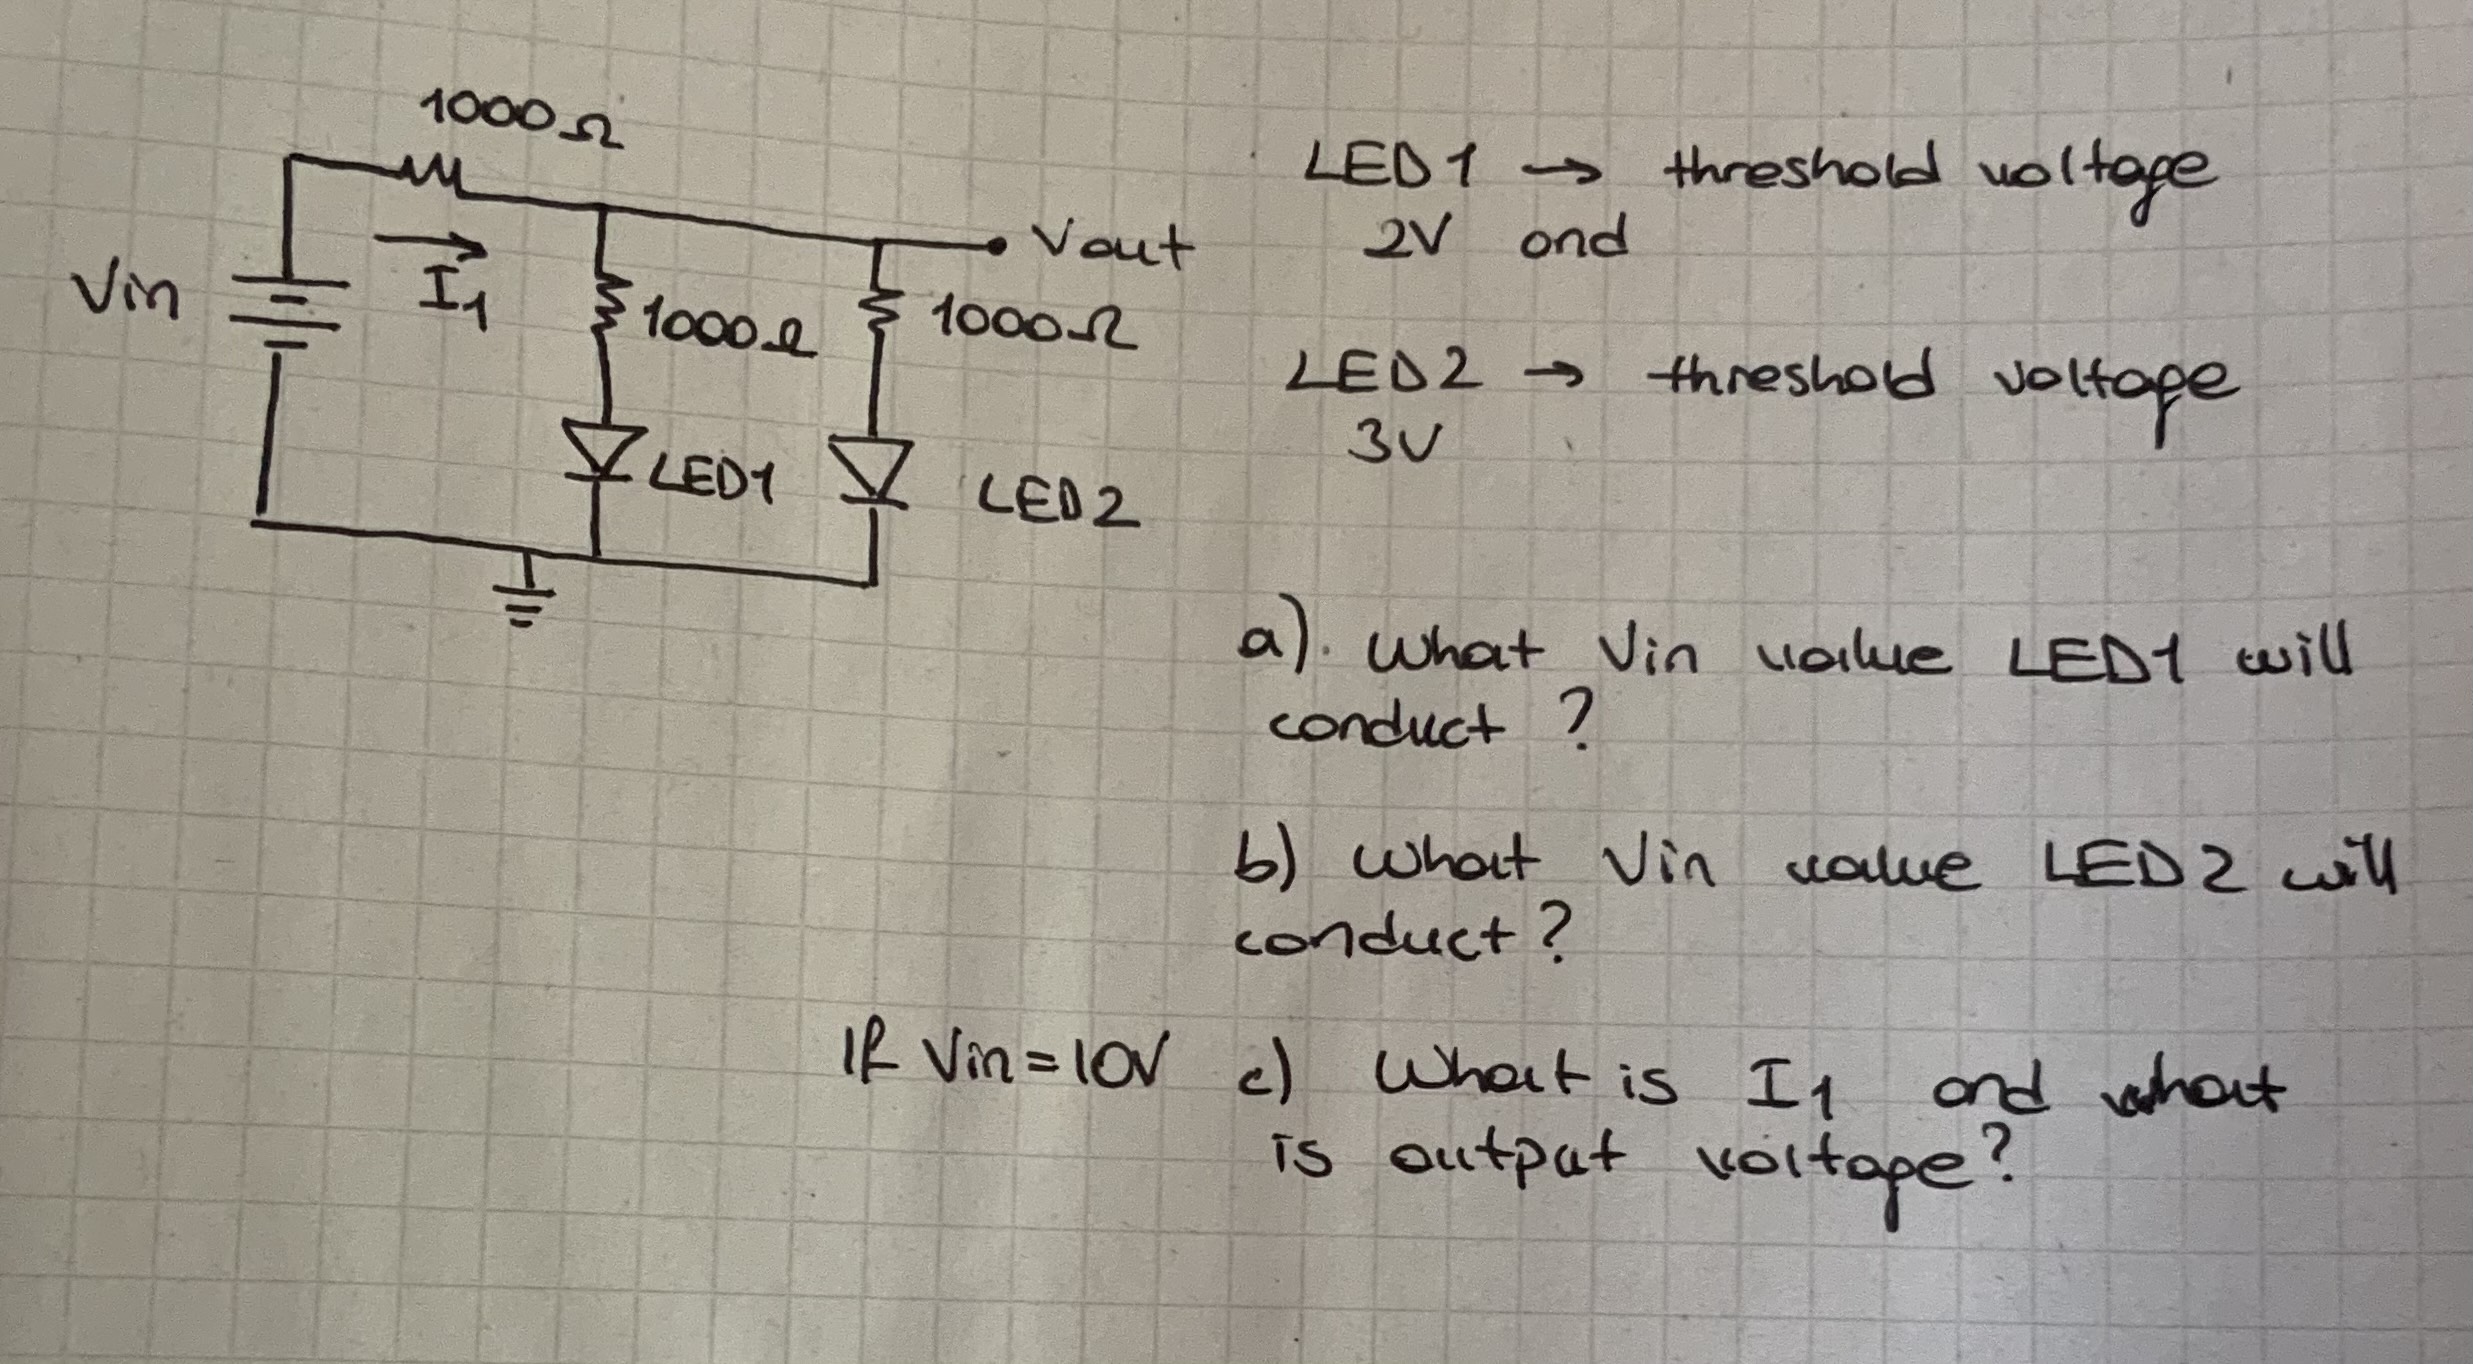 1000Ω
Vin
I1
1000Ω
1000Ω
Vout
LED1
LED2
LED1 → threshold voltage
2V and
LED2 → threshold voltage
3V
a). What Vin value LED1 will
conduct ?
b) What Vin value LED2 will
conduct?
If Vin=10V c) What is I1 and what
is output voltage?